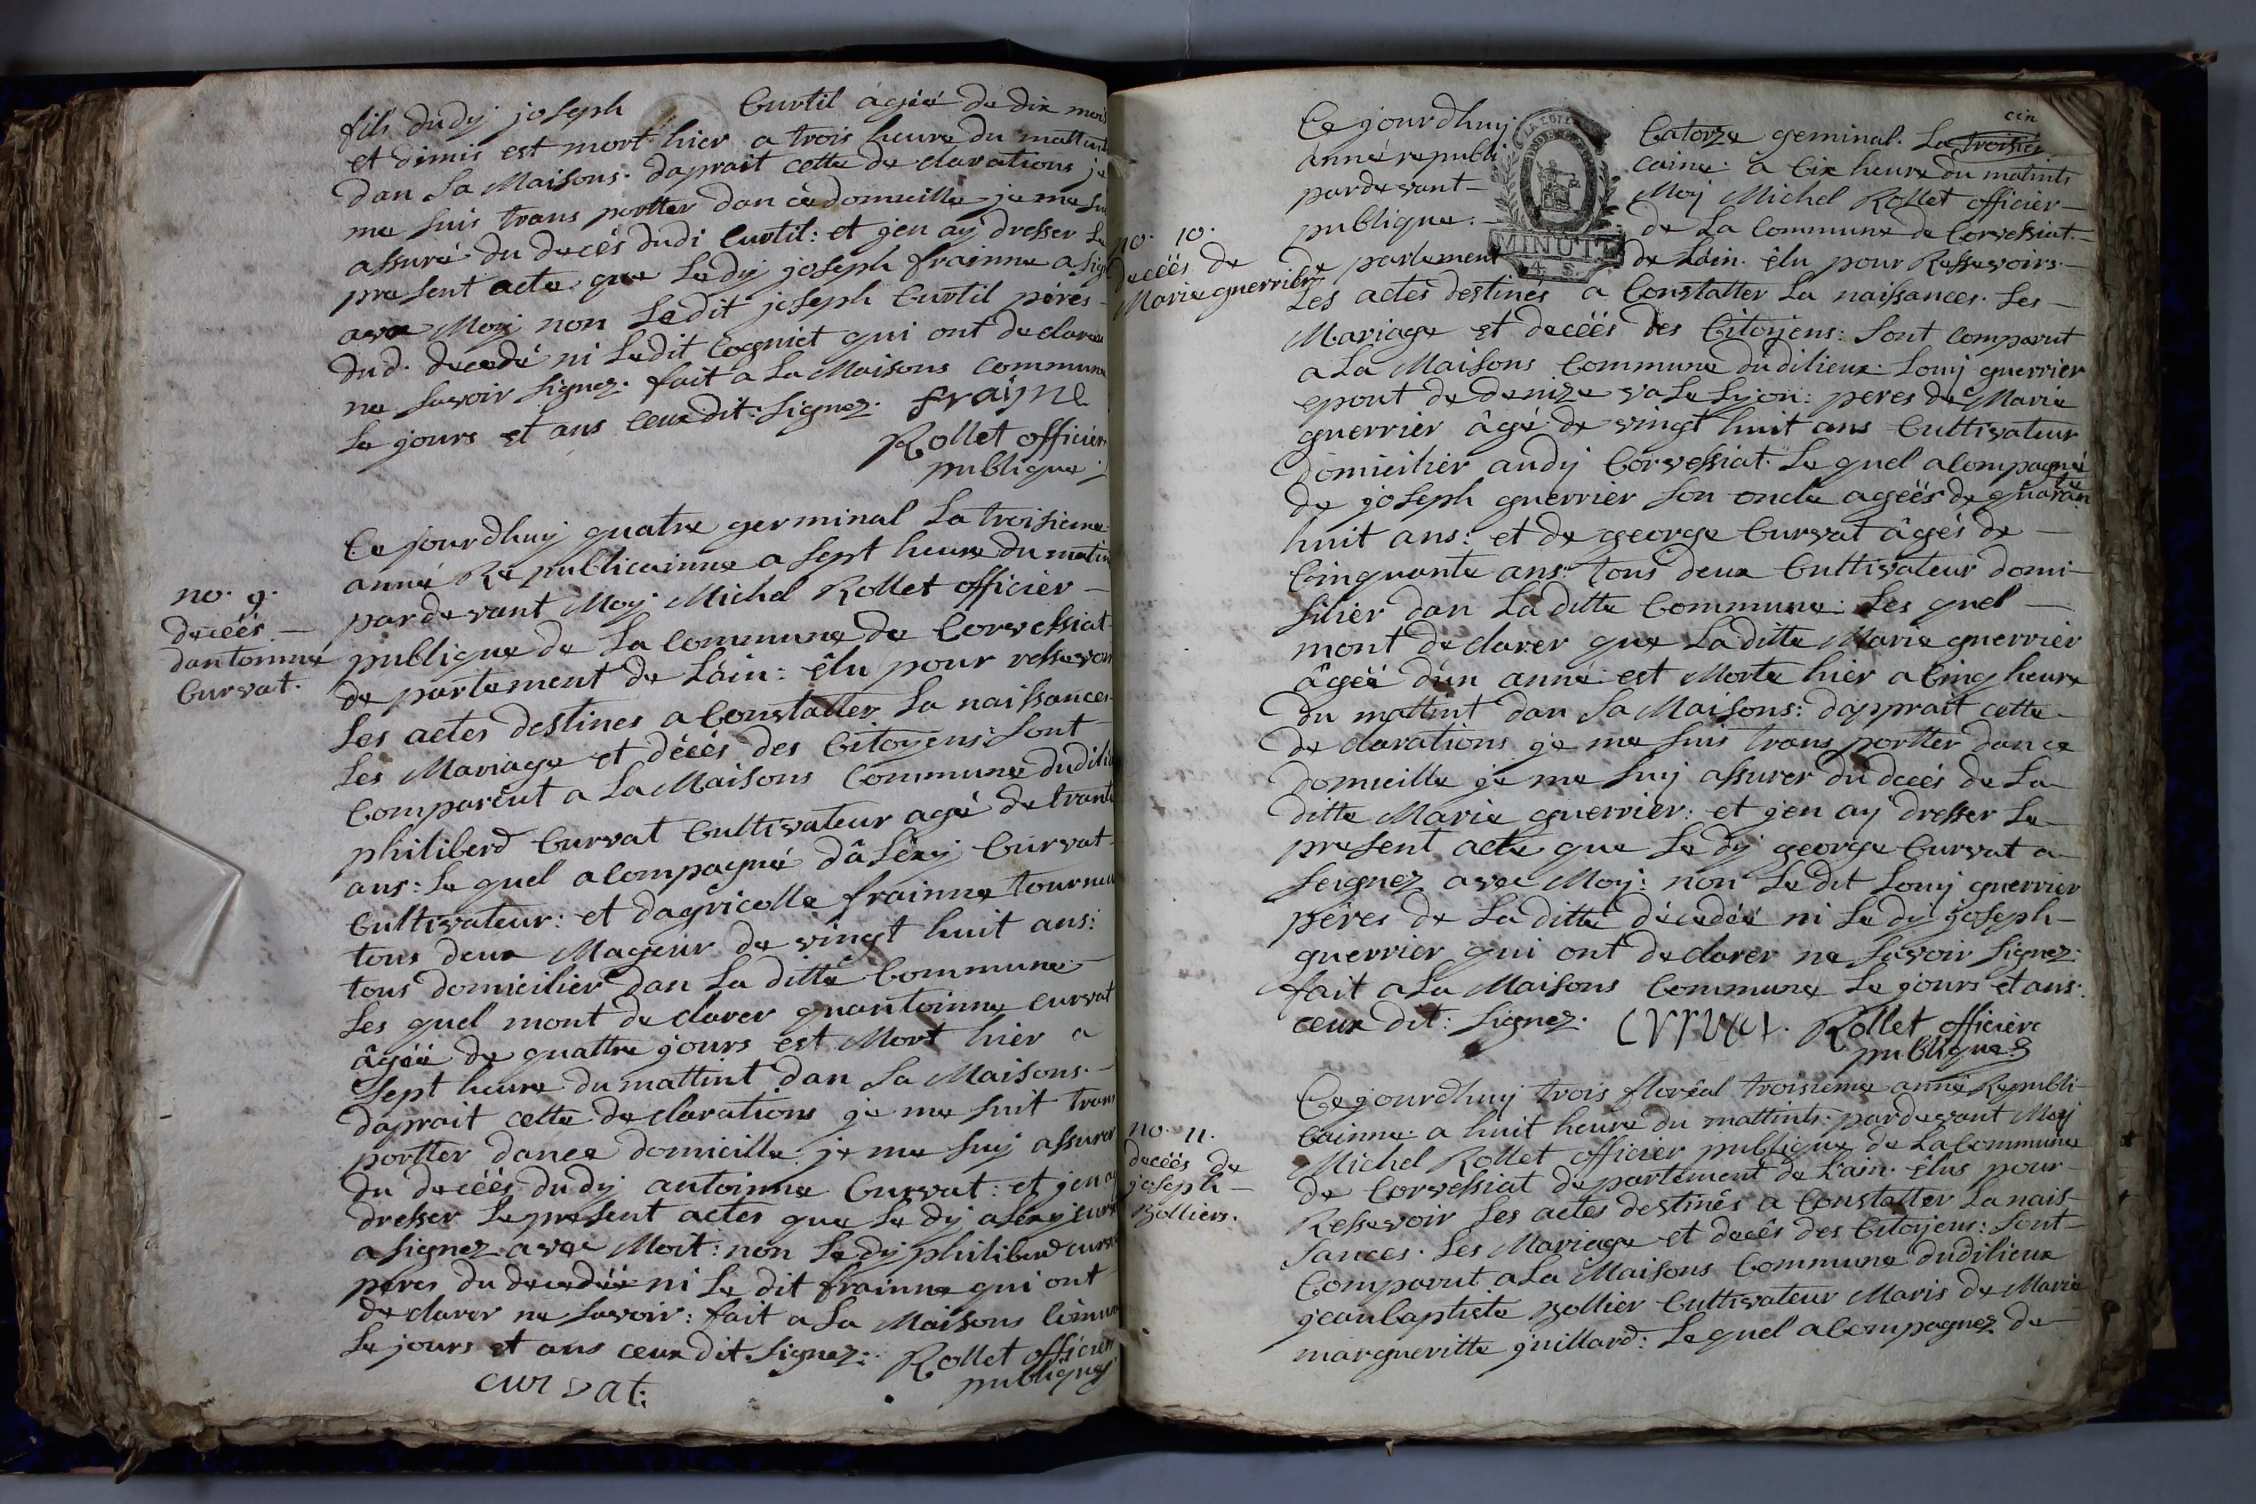 fils dudij joseph Curtil âgéé de dix mois
et dimis est mort hier a trois heure du mattint
dan sa Maisons. daprait cette de clarations je
me suis trans portter dan ce domicille je me sui
assuré du decés dudi Curtil: et jen aÿ dresser le
present acte que ledij joseph frainne a signé
avec Moÿ non ledit joseph Curtil péres
dud. decedé ni ledit Cogniet qui ont declarer
ne savoir signez. fait a la Maisons commune
le jours et ans ceux dit: signez. frayne
Rollet officier
publique
no. 9.
decéés
dantoinne
Curvat.
Ce jourdhuij quatre germinal la troisieme
anné Republicainne a sept heure du matin
pardevant Moÿ Michel Rollet officier
publique de la commune de Corvessiat
de partement de Láin: êlu pour ressevoir
les actes destinés a Constatter la naissances
les Mariage et décés des Citoÿens sont
Comparent a la Maisons Commune dudilieu
philiberd Curvat Cultivateur agé de trante
ans: le quel acompagné dâlêxij Curvat
Cultivateur: et dagricolle frainne tourneu
tous deux Mageur de vingt huit ans:
tous domicilier dan la ditte Commune
les quel mont de clarer quantoinne curvat
âgéé de quattre jours est Mort hier a
sept heure du mattint dan sa Maisons.
daprait cette declarations je me suit trans
portter dance domicille je me suij assurer
du decéés dudij antoinne Curvat: et jen aÿ
dresser le present actes que le dij alexij curvat
a signez avec Moit: non ledij philiberd curvat
peres du decedéé ni le dit frainne qui ont
declarer ne savoir: fait a la Maisons Commune
le jours et ans ceux dit signez:. Rollet officier
publique
curvat:
cin
Ce jourdhuij Catorze geminal. La troisiem
anné republi caine. a six heure du matints
pardevant Moj Michel Rollet officier
publique. de La Commune de Corvessiat.
MINUTE
4 S.
no. 10.
decéés de
Marie guerrier
de partement de Lain. êlu pour Ressevoirs.
Les actes destinés a Constatter La naissances. Les
Mariage et decéés des Citoÿens: sont comparut
a La Maisons Commune dudilieux Louij guerrier
epout de denize vaLeLyon: peres de Marie
guerrier âgé de vingt huit ans Cultivateur
domicilier audij Corvessiat. Le quel acompagné
de joseph guerrier son oncle agéés de quarante
huit ans: et de george Curvat âgés de
Cinquante ans: tous deux Cultivateur domi
silier dan La ditte Commune: Les quel
mont declarer que Laditte Marie guerrier
âgéé dún anné est Morte hier a Cinq heure
du mattint dan sa Maisons: dapprait cette
de clarations je me suis trans portter dan ce
domicille je me suij assurer du decés de La
ditte Marie guerrier: et jen aÿ dresser Le
present acte que Le dÿ george Curvat a
seignez avec Moÿ: non Ledit Louij guerrier
péres de Laditte décedéé ni Ledij joseph
guerrier qui ont declarer ne savoir signez:
fait a La Maisons Commune Le jours et ans:
ceux dit: signez. Curvat. Rollet officier
publique
no. 11.
decéés de
joseph
Bolliers.
Ce jourdhuij trois floréal troisieme anné Republi
Cainne: a huit heure du mattints: pardevant Moij
Michel Rollet officier publique de La Commune
de Corvessiat departement de Lain. êlus pour
Ressevoir Les actes destinés a Constatter La nais
sances. Les Mariage et decês des Citoÿens: sont
Comparut a La Maisons Commune dudilieux
jeanbaptiste Bollier Cultivateur Maris de Marie
margueritte juillard: Lequel acompagnez de